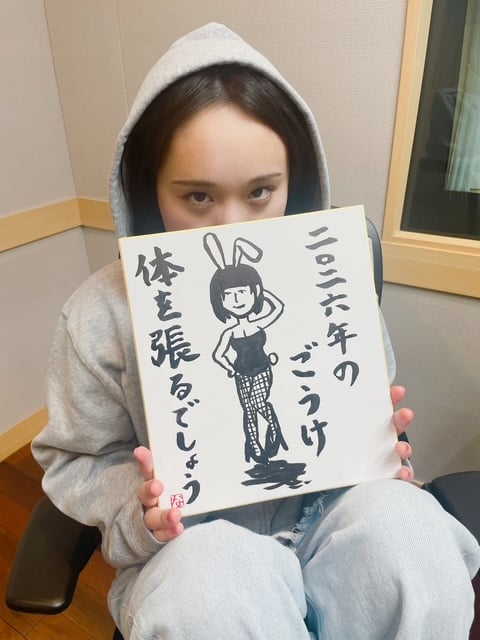 二〇二六年の
ごうけ
体を張るでしょう